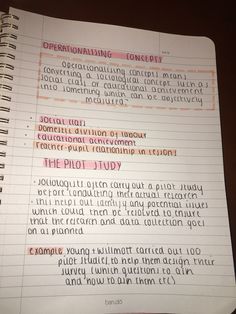 OPERATIONALISING CONCEPTS
operationalising concepts means
converting a sociological concept such as
social class or educational achievement
into something which can be objectively
measured.
• social class
• Domestic division of labour
• educational achievement
• Teacher-pupil relationship in lesson!
THE PILOT STUDY
• sociologists often carry out a pilot study
before conducting their actual research
• this helps out identify any potential issues
which could then be resolved to ensure
that the research and data collection goes
on as planned
example: young + willmott carried out 100
pilot studies to help them design their
survey (which question) to ask
and how to ask them etc)
bando